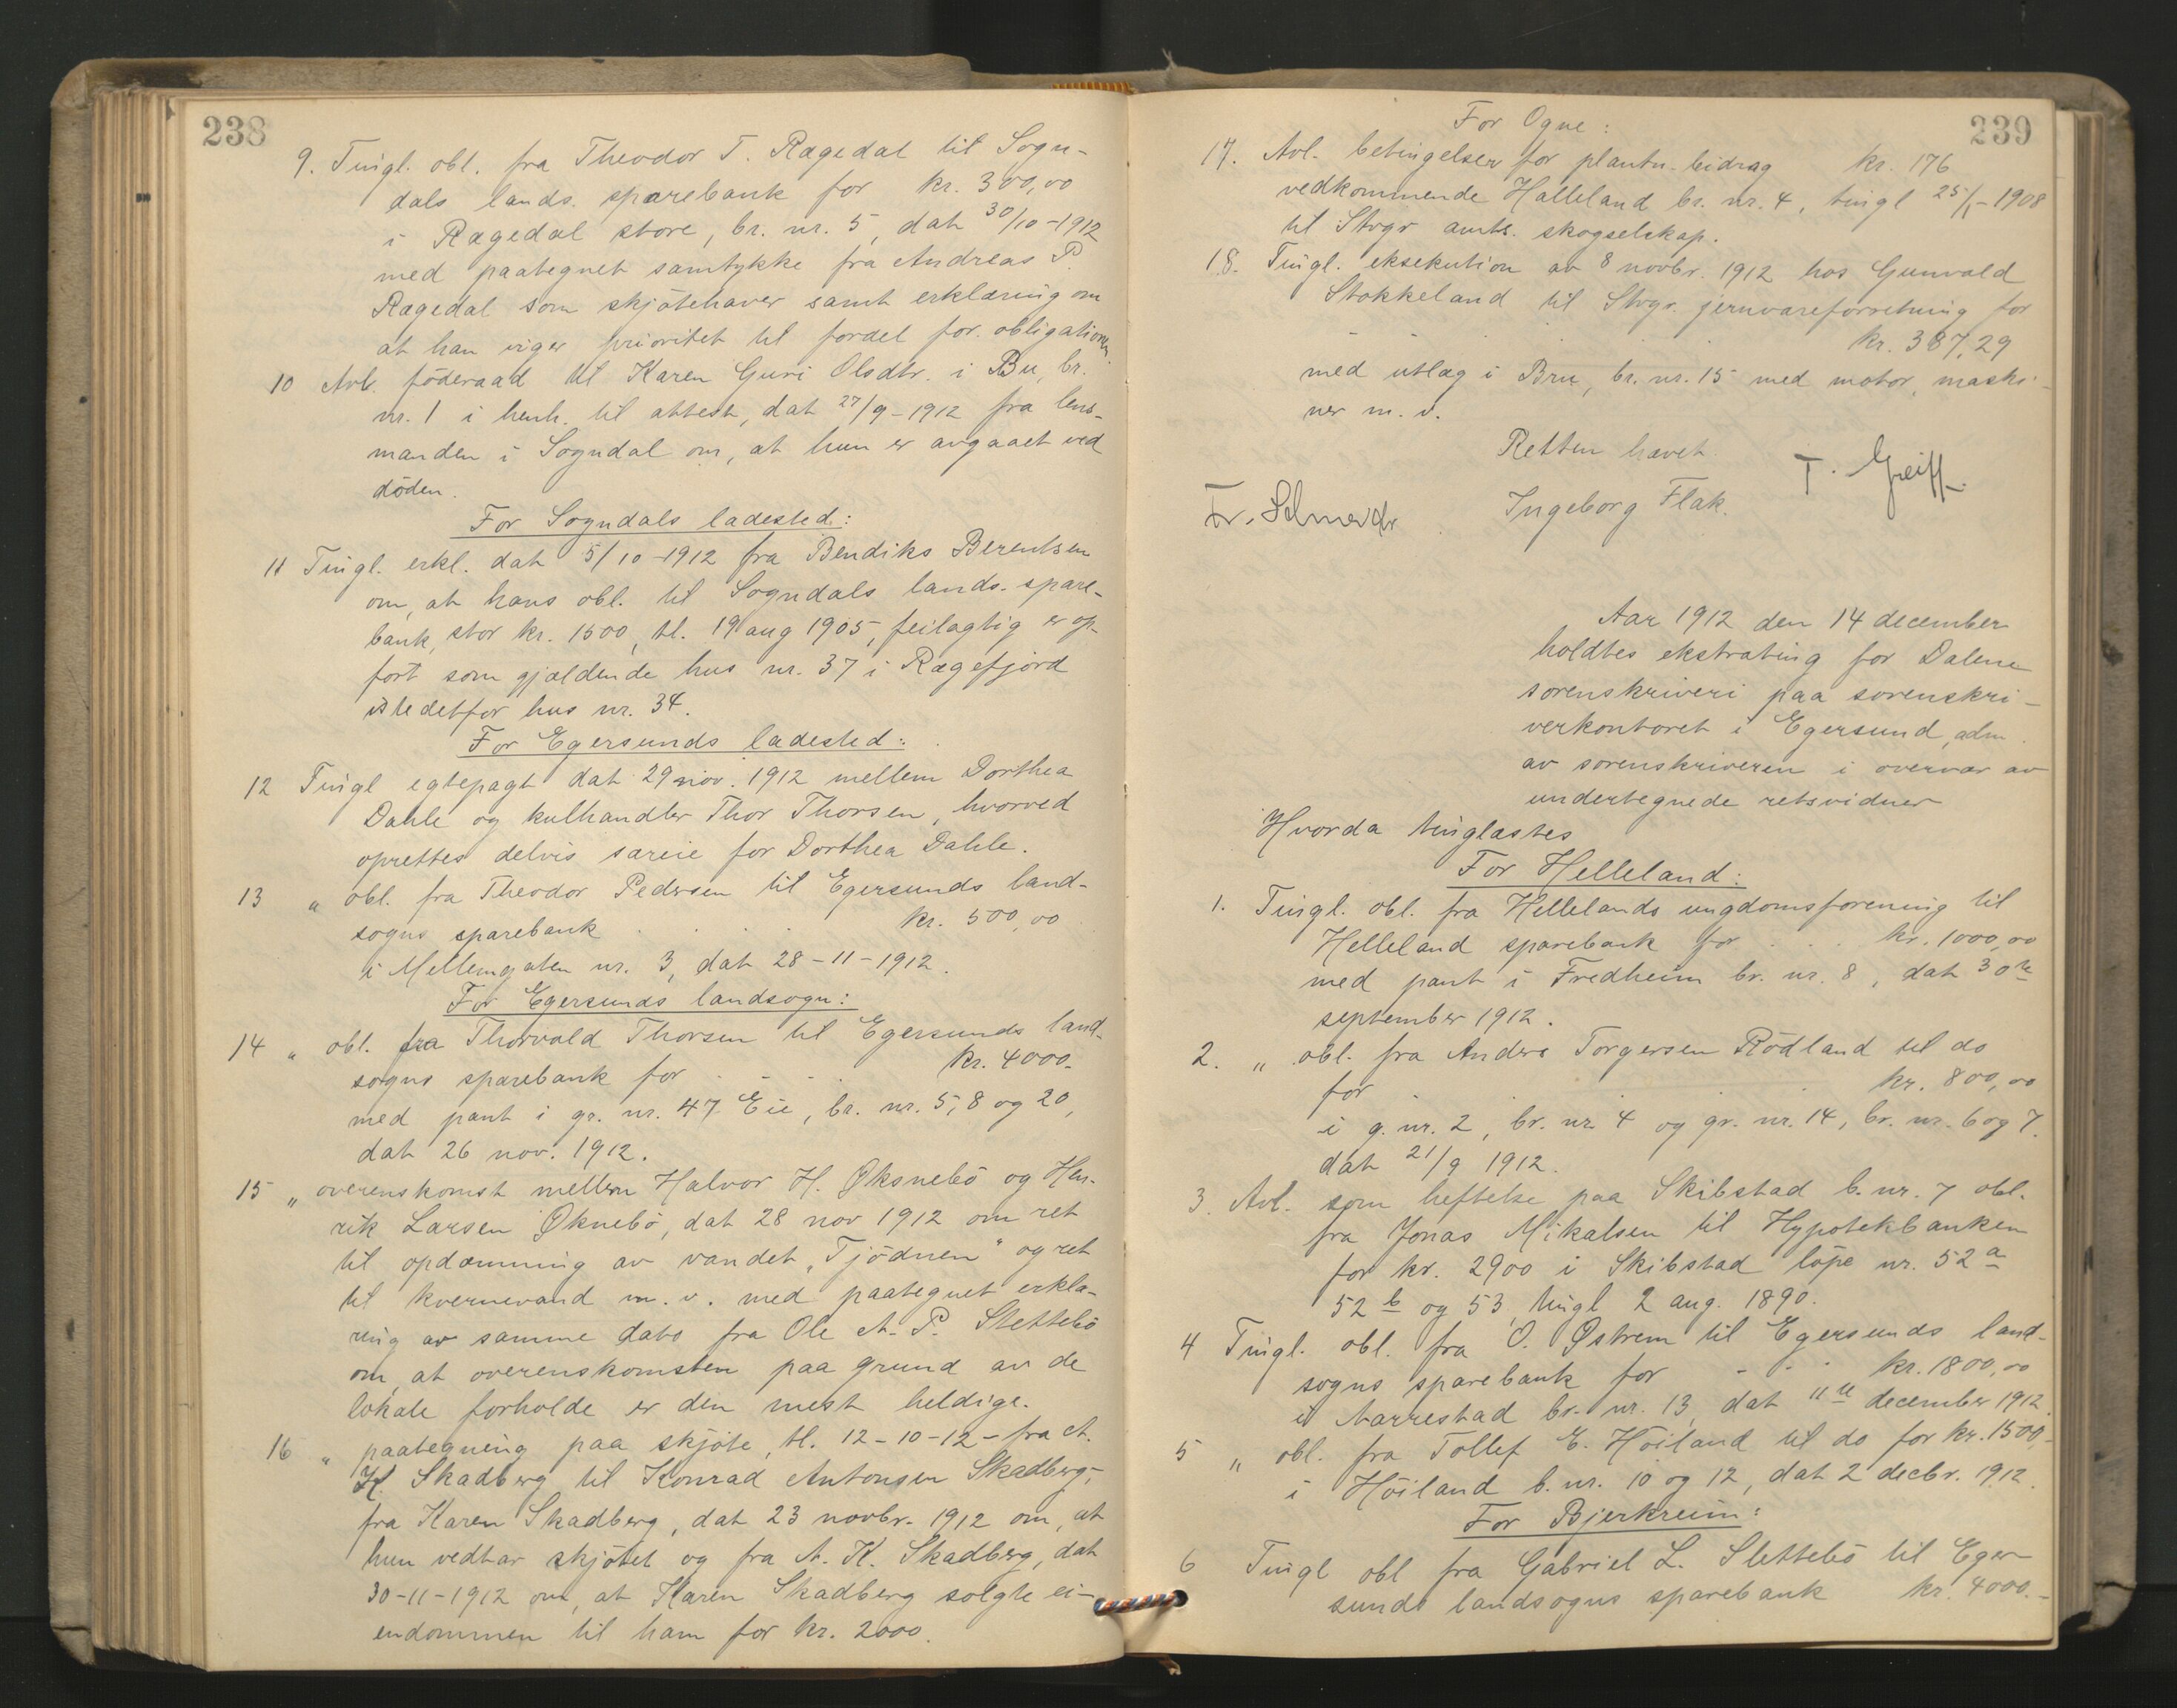 238
9. Tingl. obl. fra Theodor T. Rægedal til Sogn-
dals lands. sparebank for kr. 300,00
i Rægedal store, br. nr. 5, dat 30/10-1912
med paategnet samtykke fra Andreas P.
Rægedal som skjötehaver samt erklæring om
at han viger prioritet til fordel for obligationen.
10 Avl. föderaad til Karen Guri Olsdtr. i Bu, br.
nr. 1 i henh. til attest, dat 27/9-1912 fra lens-
manden i Sogndal om, at hun er avgaaet ved
döden.
For Sogndals ladested:
11 Tingl. erkl. dat 5/10-1912 fra Bendiks Berentsen
om, at hans obl. til Sogndals lands. spare-
bank, stor kr. 1500, tl. 19 aug 1905, feilagtig er op-
fört som gjældende hus nr. 37 i Rægefjord
istedetfor hus nr. 34.
For Egersunds ladested:
12 Tingl egtepagt dat 29 nov. 1912 mellem Dorthea
Dahle og kulhandler Thor Thorsen, hvorved
oprettes delvis særeie for Dorthea Dahle.
13 " obl. fra Theodor Pedersen til Egersunds land-
sogns sparebank . . . kr. 500,00
i Mellemgaten nr. 3, dat 28-11-1912.
For Egersunds landsogn:
14 " obl. fra Thorvald Thorsen til Egersunds land-
sogns sparebank for . . . kr. 4000.-
med pant i gr. nr. 47 Eie, br. nr. 5, 8 og 20,
dat 26 nov. 1912.
15 " overenskomst mellem Halvor H. Øksnebö og Hen-
rik Larsen Øknebö, dat 28 nov 1912 om ret
til opdæmning av vandet "Tjödnen" og ret
til kvernevand m. v. med paategnet erklæ-
ring av samme dato fra Ole A. P. Slettebö
om, at overenskomsten paa grund av de
lokale forholde er den mest heldige.
16 " paategning paa skjöte, tl. 12-10-12- fra A.
K. Skadberg til Konrad Antonsen Skadberg,
fra Karen Skadberg, dat 23 novbr. 1912 om, at
hun vedtar skjötet og fra A. K. Skadberg, dat
30-11-1912 om, at Karen Skadberg solgte ei-
endommen til ham for kr. 2000.
239
For Ogne:
17. Avl. betingelser for plantn. bidrag kr. 176
vedkommende Halleland br. nr. 4, tingl 25/1-1908
til Stvgr amts. skogselskap.
18. Tingl. eksekution av 8 novbr. 1912 hos Gunvald
Stokkeland til Stvgr. jernvareforretning for
kr. 387,29
med utlæg i Bru, br. nr. 15 med motor, maski-
ner m. v.
Retten hævet.
T. Greiff.
Ingeborg Flak.
Aar 1912 den 14 december
holdtes ekstrating for Dalene
sorenskriveri paa sorenskri-
verkontoret i Egersund, adm.
av sorenskriveren i overvær av
undertegnede retsvidner
Hvorda tinglæstes
For Helleland:
1. Tingl. obl. fra Hellelands ungdomsforening til
Helleland sparebank for . . . kr. 1000,00
med pant i Fredheim br. nr. 8, dat 30te
september 1912.
2. " obl. fra Anders Torgersen Rödland til do
for . . . kr. 800,00
i g. nr. 2, br. nr. 4 og gr. nr. 14, br. nr. 6 og 7.
dat 21/9 1912.
3. Avl. som heftelse paa Skibstad b. nr. 7 obl.
fra Jonas Mikalsen til Hypotekbanken
for kr. 2900 i Skibstad löpe nr. 52a
52b og 53, tingl 2 aug. 1890.
4 Tingl. obl. fra O. Østrem til Egersunds land-
sogns sparebank for - . . kr. 1800,00
i Aarrestad br. nr. 13, dat 11te december 1912.
5 " obl. fra Tollef E. Höiland til do for kr. 1500,-
i Höiland b. nr. 10 og 12, dat 2 decbr. 1912.
For Bjerkreim:
6 Tingl obl fra Gabriel L. Slettebö til Eger-
sunds landsogns sparebank kr. 4000.-